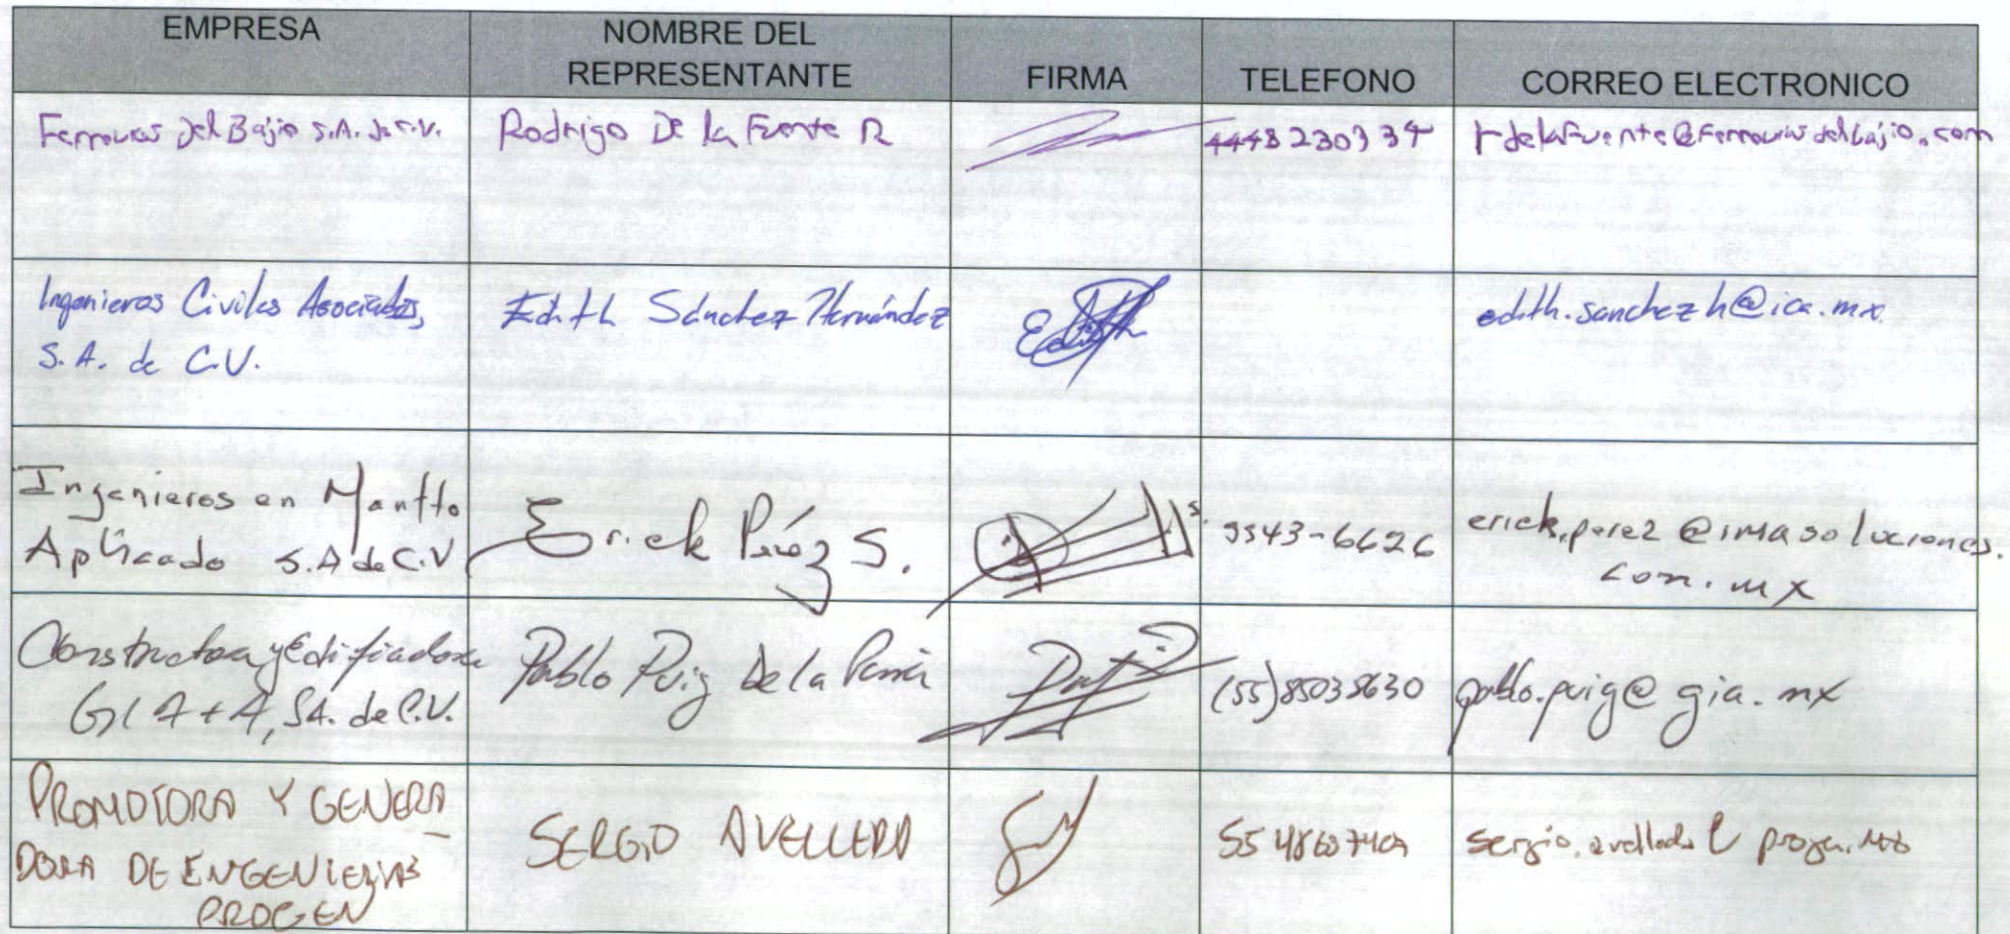 EMPRESA
NOMBRE DEL
REPRESENTANTE
FIRMA
TELEFONO
CORREO ELECTRONICO
Ferrovias Del Bajio S.A. de C.V.
Rodrigo De la Fuente R
4448230334
rdelafuente@Ferroviasdelbajio.com
Ingenieros Civiles Asociados,
S.A. de C.V.
Edith Sánchez Hernández
Edith
edith.sanchezh@ica.mx
Ingenieros en Mantto
Aplicado S.A de C.V
Erick Pérez S.
5543-6626
erick.perez@imasoluciones.
com.mx
Constructora y Edificadora
GIA+A, SA. de C.V.
Pablo Puig De la
(55)85035630
pablo.puig@gia.mx
PROMOTORA Y GENERA
DORA DE ENGENIERIAS
PROGEN
SERGIO AVELLEDA
sergio.avelleda